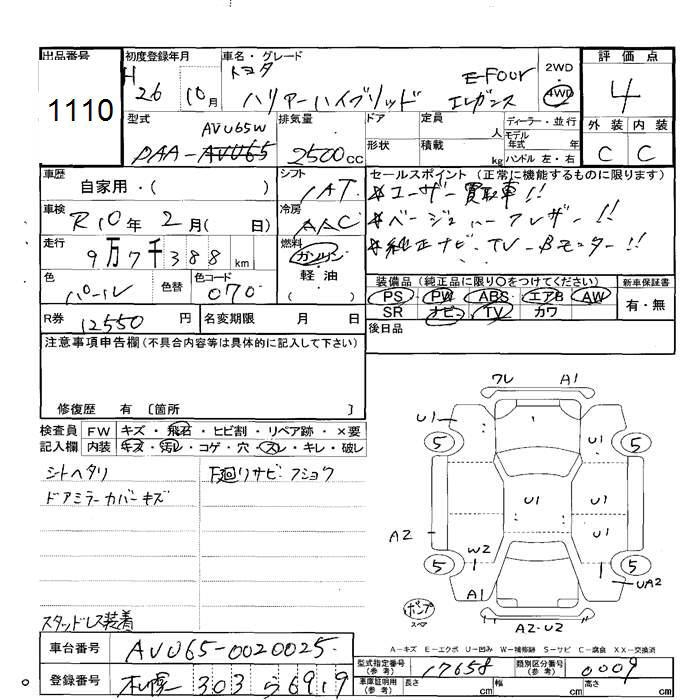 出品番号 初度登録年月 車名・グレード 評価点
1110
H 26 10月
トヨタ E-Four
ハリアーハイブリッド エレガンス
2WD
4WD
4
外装 内装
C C
型式 排気量 ドア 定員 ディーラー・並行
AVU65W
DAA-AVU65 2500cc
人 モデル年式 年
形状 積載 kg ハンドル 左・右
車歴 シフト セールスポイント(正常に機能するものに限ります)
自家用・( ) IAT
＊ユーザー買取車!!
車検 冷房
R10年2月( 日) AAC
＊ベージュハーフレザー!!
走行 燃料
9万7千388km ガソリン
＊純正ナビ・TV・Bモニター!!
色 色替 色コード 軽油
パール 070 ( )
装備品(純正品に限り○をつけてください) 新車保証書
PS PW ABS エアB AW
SR ナビ TV カワ 有・無
R券 12550円 名変期限 月 日
後日品
注意事項申告欄(不具合内容等は具体的に記入して下さい)
修復歴 有 [箇所 ]
検査員 FW キズ・飛石・ヒビ割・リペア跡・×要
記入欄 内装 キズ・汚レ・コゲ・穴・スレ・キレ・破レ
シートヘタリ 下廻りサビ フショク
ドアミラーカバーキズ
スタッドレス装着
ワレ A1
U1
5 5
U1
U1 U1
A2
W2
1 1
5 5
A1 UA2
ポンプ
スペア
A2-U2
A-キズ E-エクボ U-凹み W-補修跡 S-サビ C-腐食 XX-交換済
車台番号 AVU65-0020025
型式指定番号(参考) 17658 類別区分番号(参考) 0009
登録番号 札幌 303 ら 6919
車庫証明用(参考) 長さ cm 幅 cm 高さ cm